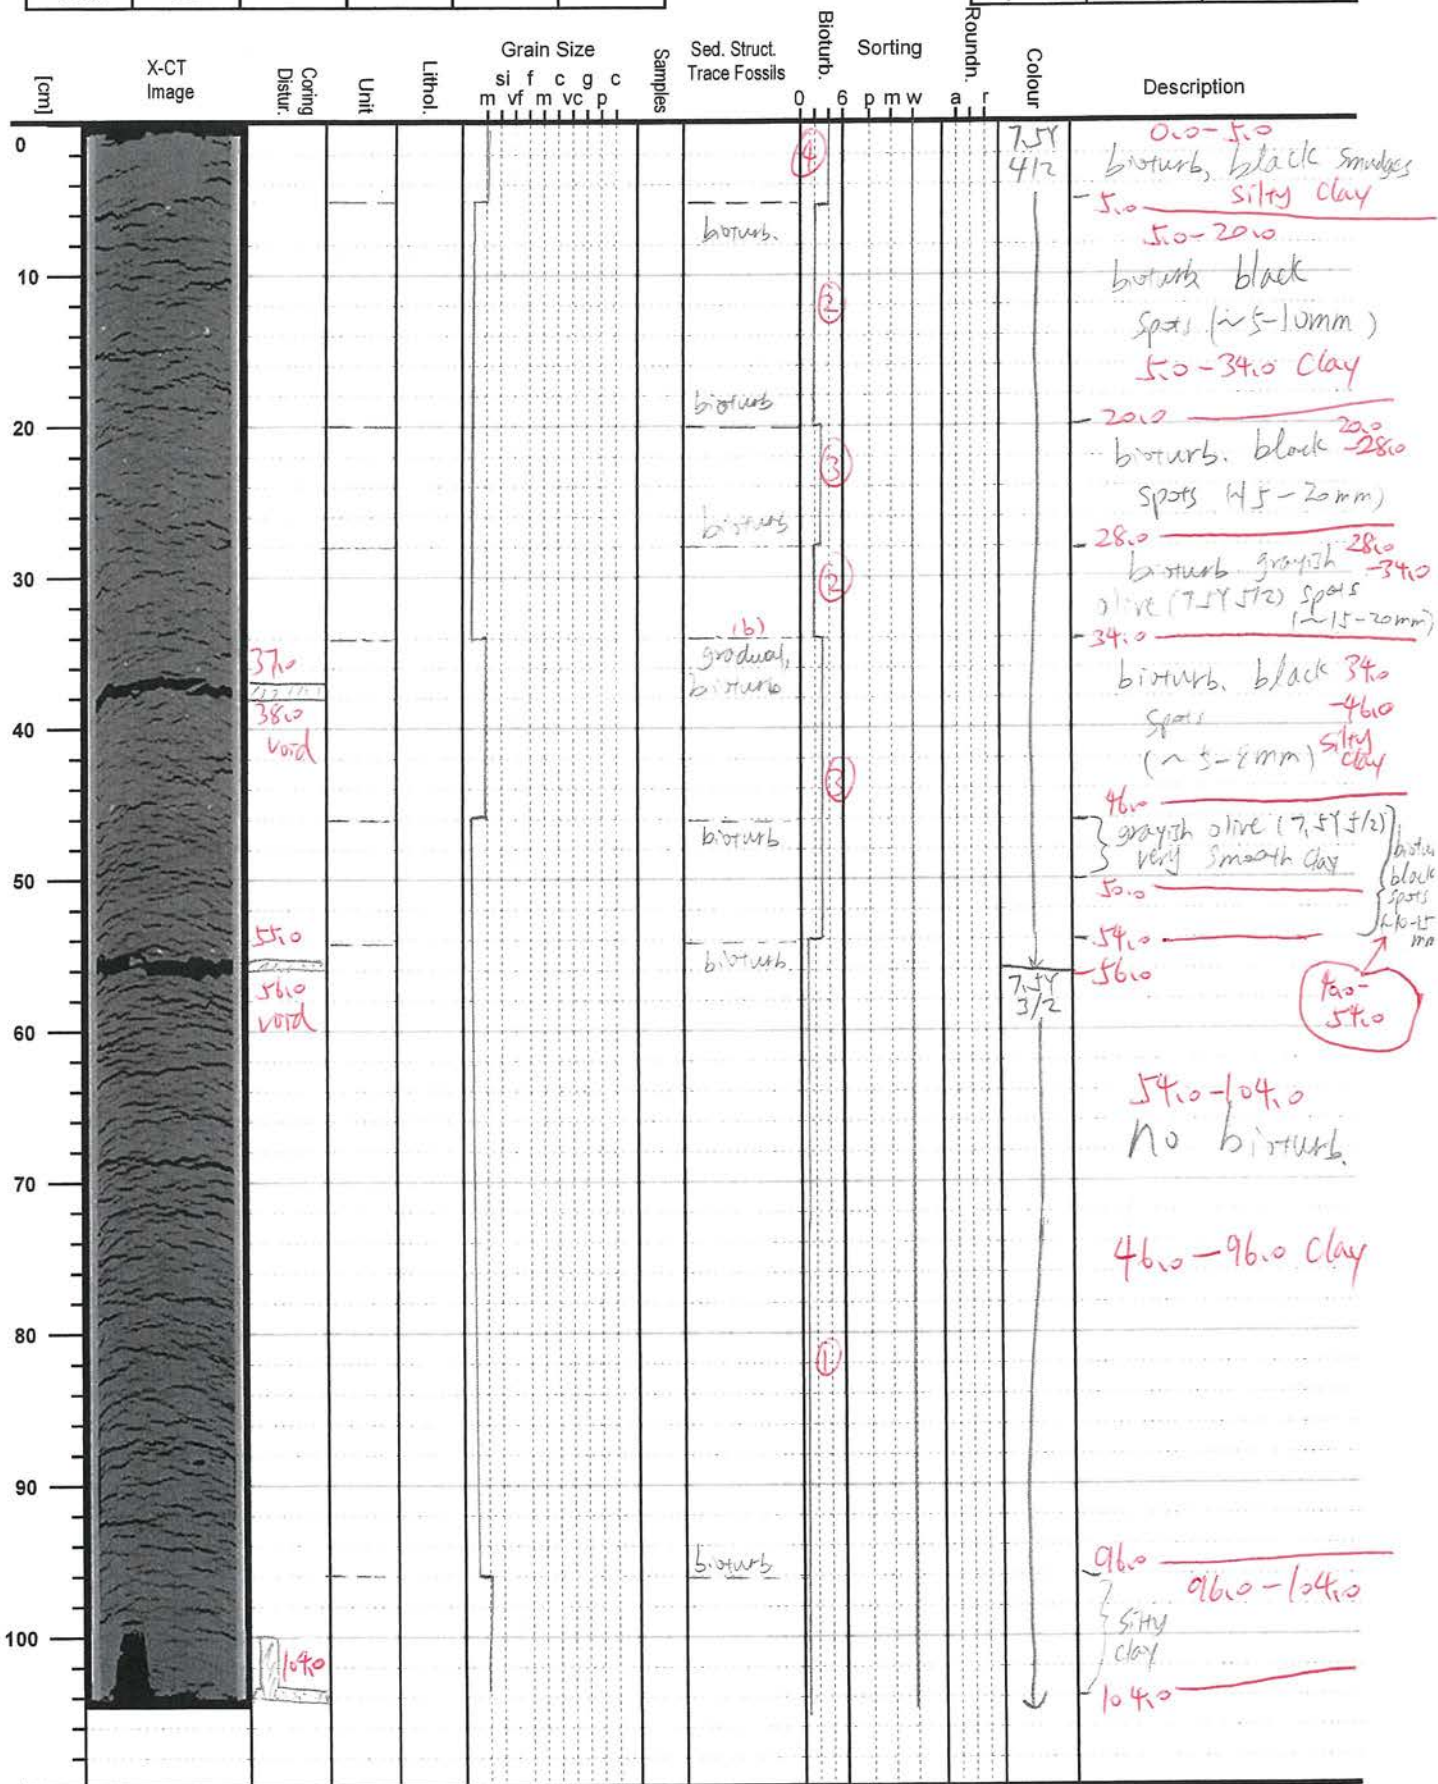 [cm]
X-CT
Image
Coring
Distur.
Unit
Lithol.
Grain Size
si f c g c
m vf m vc p
Samples
Sed. Struct.
Trace Fossils
Bioturb.
0 6
Sorting
p m w
Roundn.
a r
Colour
Description
0
10
20
30
40
50
60
70
80
90
100
37.0
38.0
void
55.0
56.0
void
104.0
bioturb.
bioturb
bioturb
(b)
gradual,
bioturb
bioturb
bioturb
bioturb
4
2
3
2
3
1
7.5Y
4/2
7.5Y
3/2
0.0-5.0
bioturb, black smudges
silty clay
5.0
5.0-20.0
bioturb black
spots (~5-10mm)
5.0-34.0 Clay
20.0
20.0
bioturb. black -28.0
spots (~15-20mm)
28.0
28.0
bioturb grayish -34.0
olive (7.5Y 5/2) spots
(~15-20mm)
34.0
bioturb. black 34.0
spots -46.0
silty
clay
46.0
grayish olive (7.5Y 5/2)
very smooth clay
black
spots
~10-15
mm
50.0
54.0
56.0
54.0
54.0-104.0
no bioturb.
46.0-96.0 Clay
96.0
96.0-104.0
silty
clay
104.0